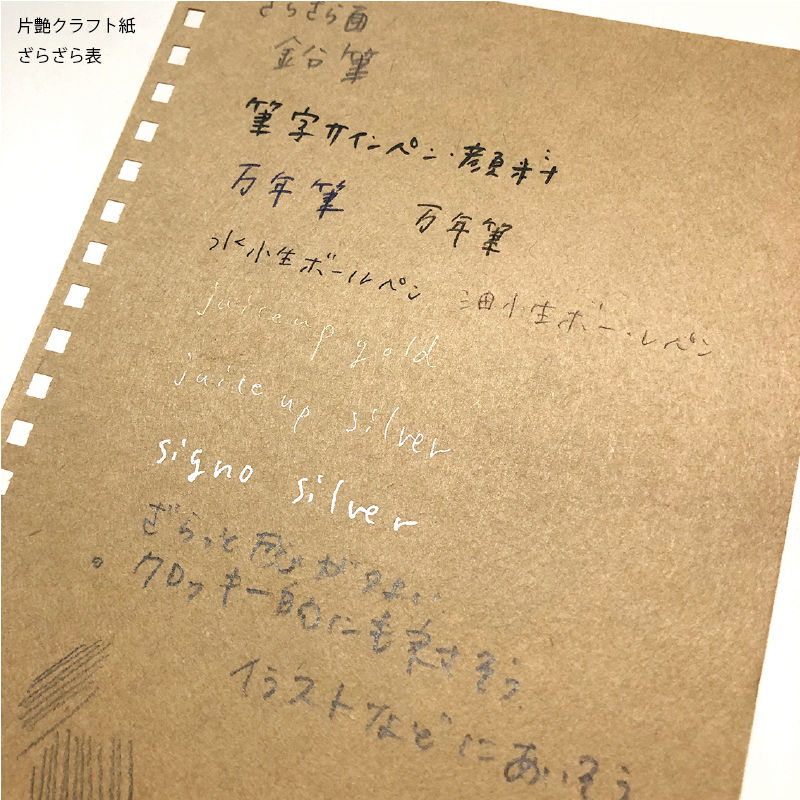 片艶クラフト紙
ざらざら表
ざらざら面
鉛筆
筆字サインペン・顔料
万年筆 万年筆
水性ボールペン 油性ボールペン
juice up gold
juice up silver
signo silver
ざらっと感がつよい
クロッキー的にも良さそう
イラストなどにあいそう